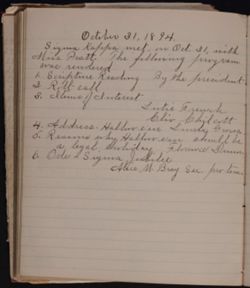 October 31, 1894.
Sigma Kappa met on Oct 31, with
Miss Pratt. The following program
was rendered
1. Scripture Reading By the president
2. Roll call
3. Items of Interest
Lutie French
Clio Chilcott
4. Address. Hallowe'en
5. Reasons why Hallowe'en should be
a legal holiday Florence
6 Ode to Sigma
Alice M. Bray Sec. pro tem